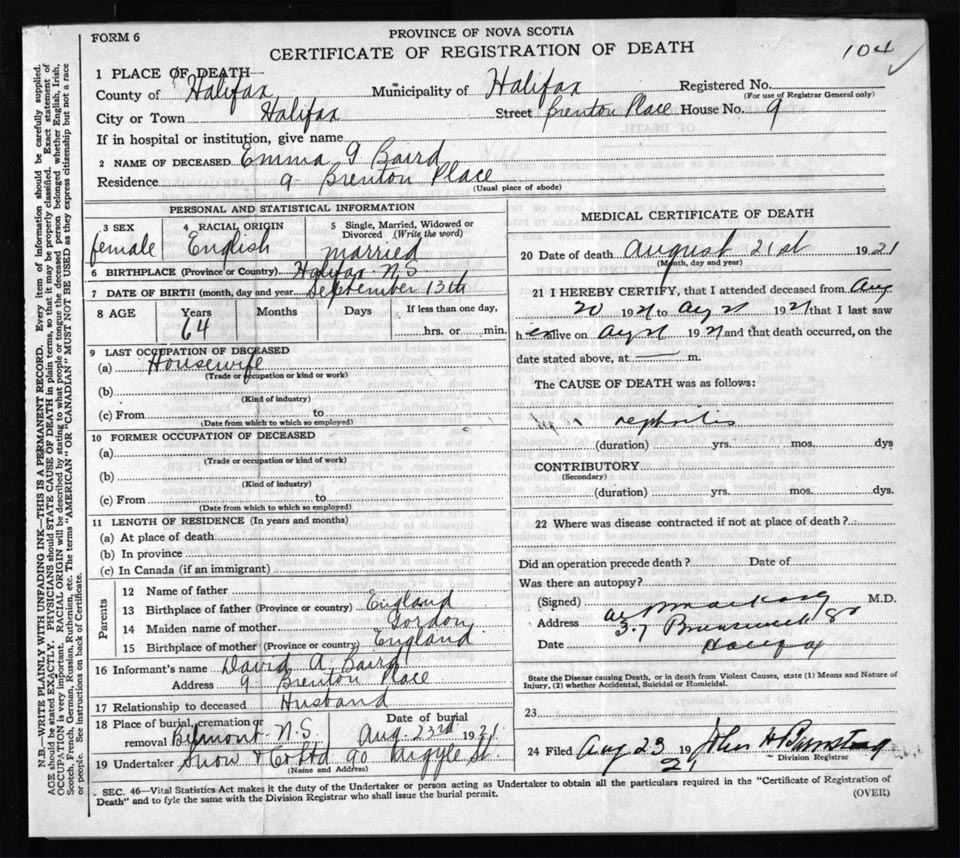 FORM 6
PROVINCE OF NOVA SCOTIA
CERTIFICATE OF REGISTRATION OF DEATH
104
1 PLACE OF DEATH
County of Halifax Municipality of Halifax Registered No.
(For use of Registrar General only)
City or Town Halifax Street Brenton Place House No. 9
If in hospital or institution, give name
2 NAME OF DECEASED Emma G Baird
Residence 9 - Brenton Place
(Usual place of abode)
PERSONAL AND STATISTICAL INFORMATION
3 SEX 4 RACIAL ORIGIN 5 Single, Married, Widowed or
Divorced (Write the word)
female English married
6 BIRTHPLACE (Province or Country) Halifax N.S
7 DATE OF BIRTH (month, day and year) September 13th
8 AGE Years Months Days If less than one day,
64 hrs. or min.
9 LAST OCCUPATION OF DECEASED
(a) Housewife
(Trade or occupation or kind or work)
(b)
(Kind of industry)
(c) From to
(Date from which to which so employed)
10 FORMER OCCUPATION OF DECEASED
(a)
(Trade or occupation or kind of work)
(b)
(Kind of industry)
(c) From to
(Date from which to which so employed)
11 LENGTH OF RESIDENCE (In years and months)
(a) At place of death
(b) In province
(c) In Canada (if an immigrant)
Parents
12 Name of father
13 Birthplace of father (Province or country) England
14 Maiden name of mother Gordon
15 Birthplace of mother (Province or country) England
16 Informant's name David A. Baird
Address 9 - Brenton Place
17 Relationship to deceased Husband
18 Place of burial, cremation or removal Belmont N.S. Date of burial Aug. 23rd 1921
19 Undertaker Snow & Co Ltd 90 Argyle St.
(Name and Address)
MEDICAL CERTIFICATE OF DEATH
20 Date of death August 21st 1921
(Month, day and year)
21 I HEREBY CERTIFY, that I attended deceased from Aug
20 1921 to Aug 21 1921 that I last saw
h er alive on Aug 21 1921 and that death occurred, on the
date stated above, at — m.
The CAUSE OF DEATH was as follows:
nephritis
(duration) yrs. mos. dys
CONTRIBUTORY
(Secondary)
(duration) yrs. mos. dys.
22 Where was disease contracted if not at place of death?
Did an operation precede death? Date of
Was there an autopsy?
(Signed) M.D.
Address 37 Brunswick St
Date Halifax
State the Disease causing Death, or in death from Violent Causes, state (1) Means and Nature of
Injury, (2) whether Accidental, Suicidal or Homicidal.
23
24 Filed Aug 23 1921 John H
Division Registrar
SEC. 46—Vital Statistics Act makes it the duty of the Undertaker or person acting as Undertaker to obtain all the particulars required in the "Certificate of Registration of
Death" and to fyle the same with the Division Registrar who shall issue the burial permit.
(OVER)
N.B.—WRITE PLAINLY WITH UNFADING INK—THIS IS A PERMANENT RECORD. Every item of information should be carefully supplied.
AGE should be stated EXACTLY. PHYSICIANS should STATE CAUSE OF DEATH in plain terms, so that it may be properly classified. Exact statement of
OCCUPATION is very important. RACIAL ORIGIN will be described by stating to what people or tongue the deceased person belonged whether English, Irish,
Scotch, French, German, Russian, Ruthenian, etc. The terms "AMERICAN" OR "CANADIAN" MUST NOT BE USED as they express citizenship but not a race
or people. See instructions on back of Certificate.